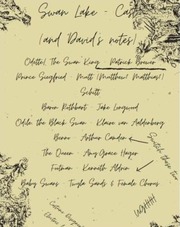 Swan Lake - Cast
(and David's notes)
Odette / The Swan King - Patrick Brewer
Prince Siegfried - Mutt (Matthew? Matthias?)
Schitt
Baron Rothbart - Jake Longwood
Odile the Black Swan - Klaire van Addenberg
Benno - Arthur Camden
The Queen - Amy-Grace Hayer
Footman - Kenneth Aldrin
Baby Swans - Twyla Sands & Female Chorus
Switch these two